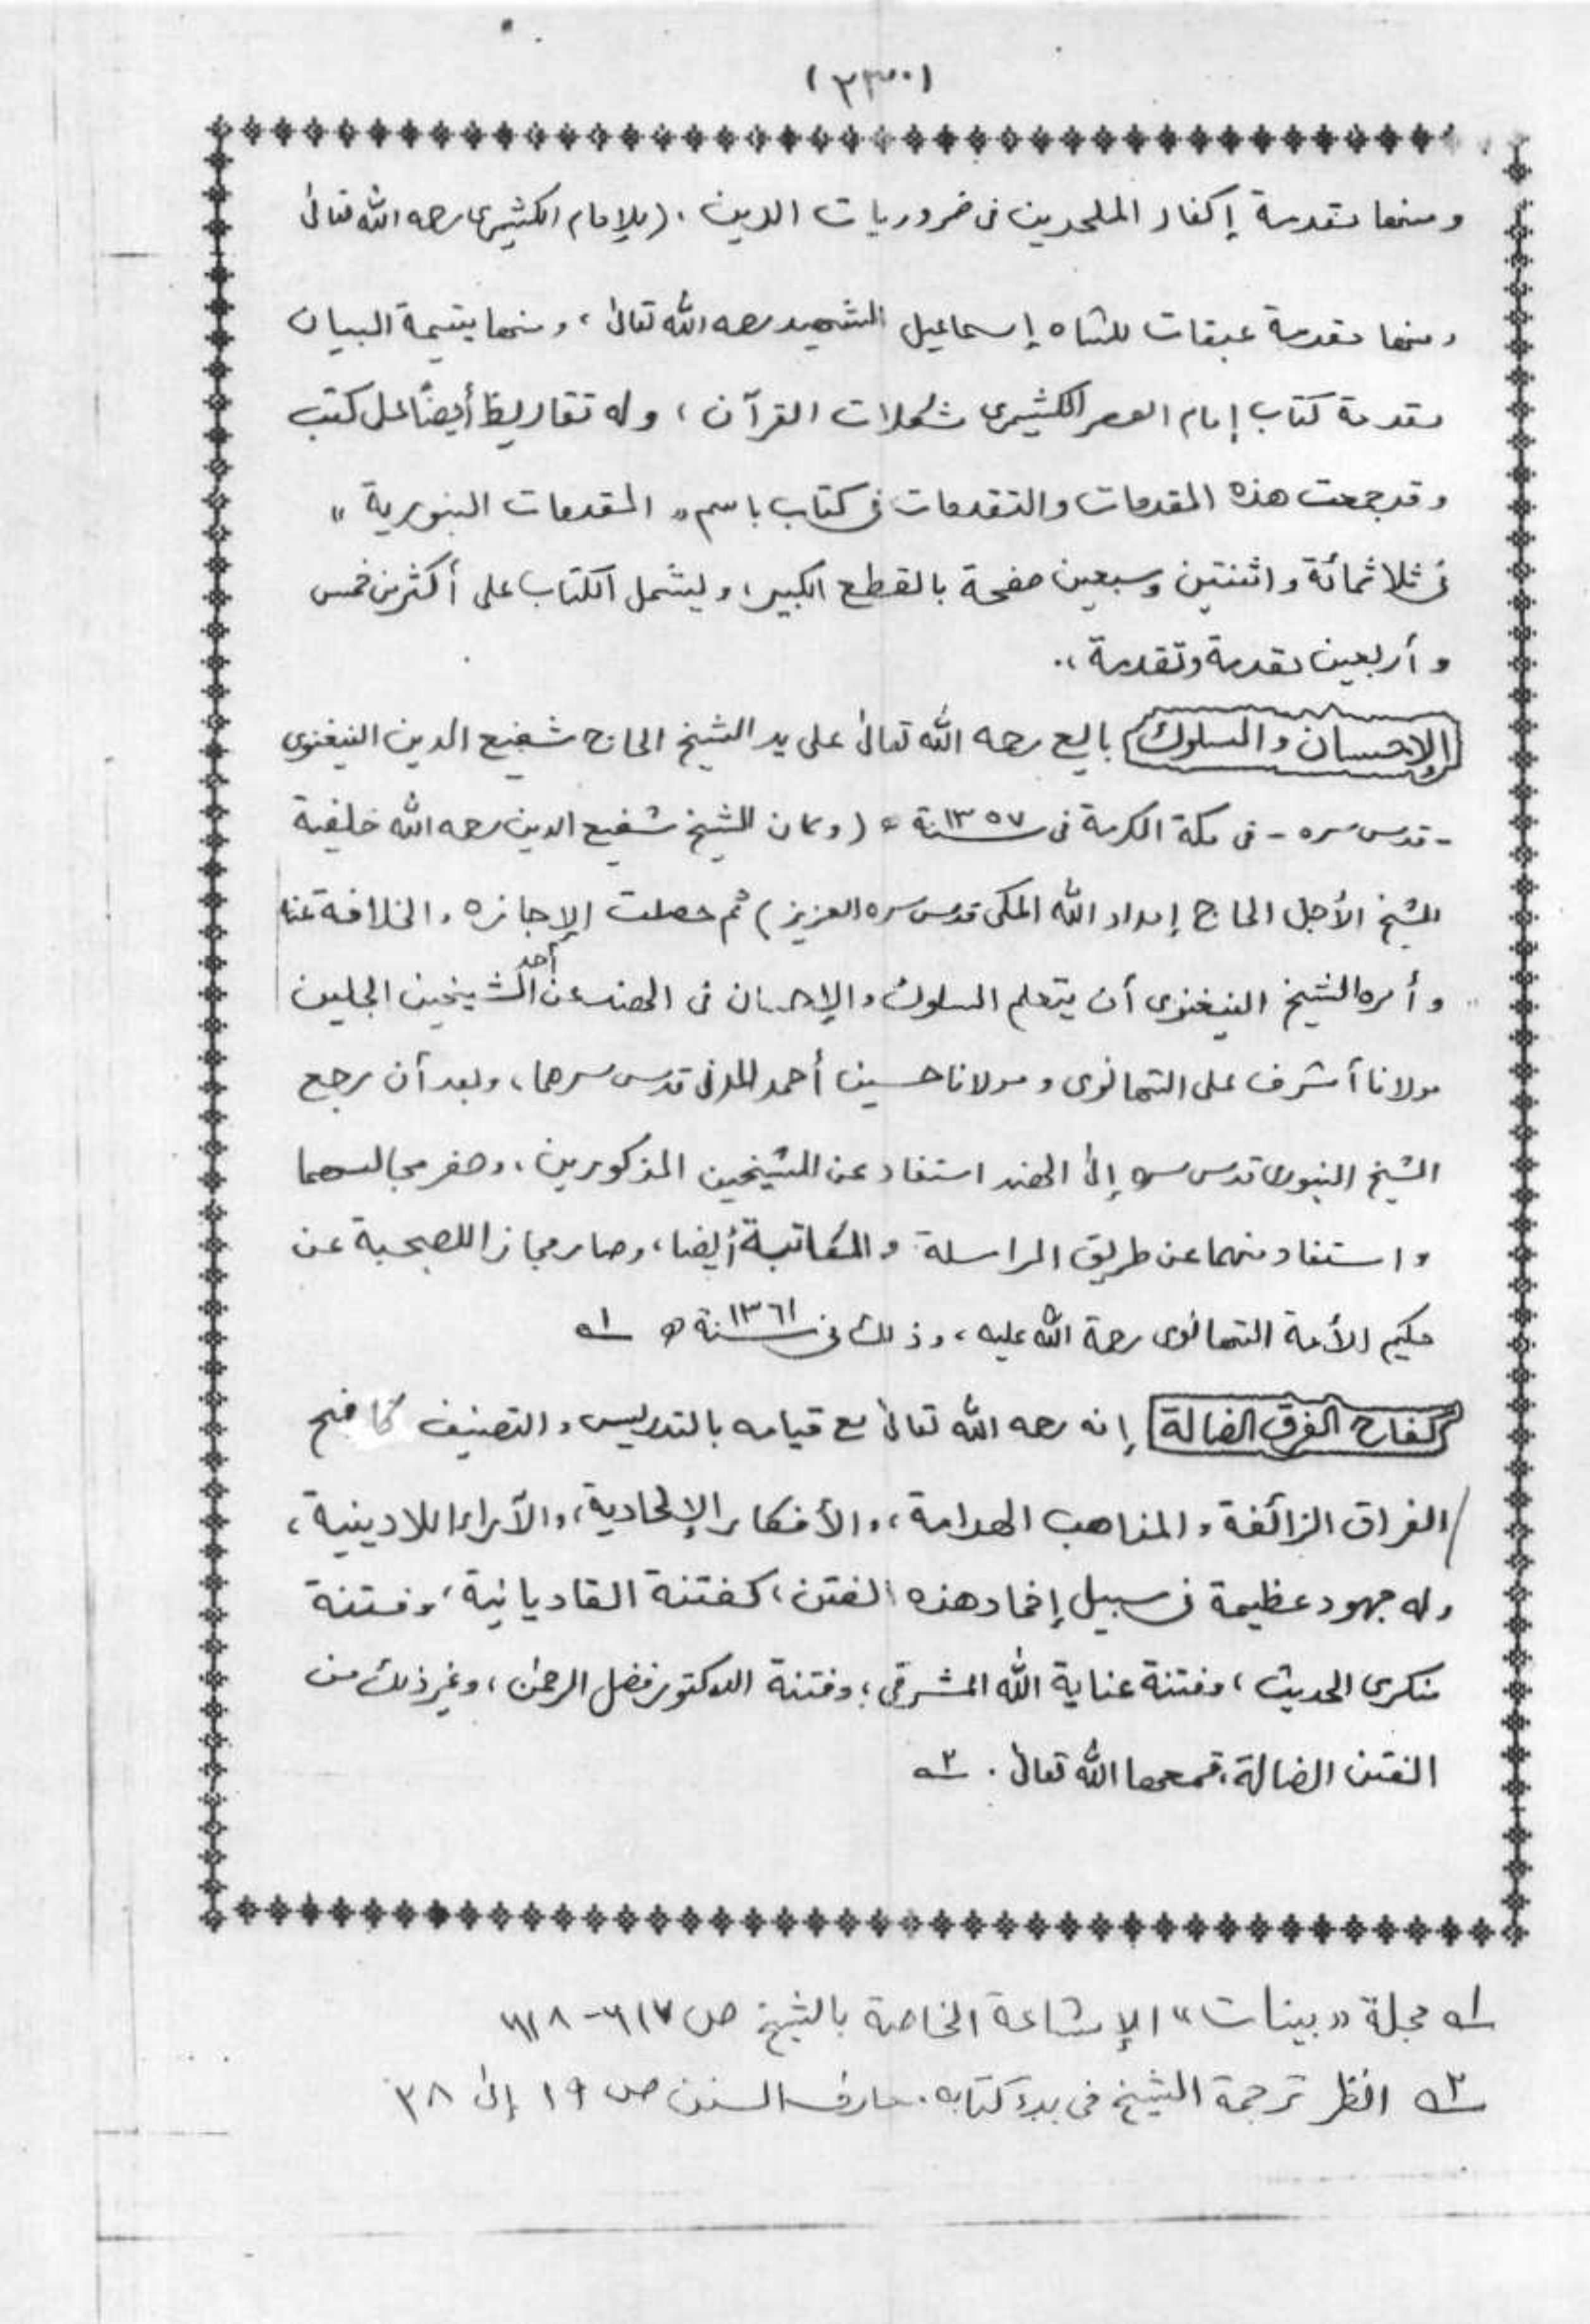 (٢٣٠)
ومنها مقدمة إكفار الملحدين فى ضروريات الدين. (للإمام الكشيرى رحمه الله تعالىٰ
ومنها مقدمة عبقات للشاه إسماعيل الشهيد رحمه الله تعالىٰ، ومنها يتيمة البيان
مقدمة كتاب إمام العصر الكشيرى مشكلات القرآن، وله تقاريظ أيضاً على كتب
وقد جمعت هذه المقدمات والتقدمات فى كتاب باسم "المقدمات البنورية"
فى ثلاثمائة واثنتين وسبعين صفحة بالقطع الكبير، ويشمل الكتاب على أكثر من خمس
وأربعين مقدمة وتقدمة.
الإحسان والسلوك بايع رحمه الله تعالىٰ على يد الشيخ الحاج شفيع الدين النيغنوى
- قدس سره - فى مكة المكرمة فى سنة ١٣٥٧ ھ (وكان الشيخ شفيع الدين رحمه الله خليفة
الشيخ الأجل الحاج إمداد الله المكى قدس سره العزيز) ثم حصلت الإجازه والخلافة عنه
وأمره الشيخ النيغنوى أن يتعلم السلوك والإحسان فى الهند عن أحد الشيخين الجليين
مولانا أشرف على التهانوى ومولانا حسين أحمد المدنى قدس سرهما، وبعد أن رجع
الشيخ البنورى قدس سره إلىٰ الهند استفاد عن الشيخين المذكورين، وحضر مجالسهما
واستفاد منهما عن طريق المراسلة والمكاتبة أيضا، وصار مجازا للصحبة عن
حكيم الأمة التهانوى رحمة الله عليه، وذلك فى سنة ١٣٦١ ھ ١ـه
كفاح الفرق الضالة إنه رحمه الله تعالىٰ مع قيامه بالتدريس والتصنيف كافح
الفراق الزائغة والمذاهب الهدامة، والأفكار الإلحادية، والآراء اللادينية،
وله جهود عظيمة فى سبيل إخماد هذه الفتن، كفتنة القاديانية، وفتنة
منكرى الحديث، وفتنة عناية الله المشرقى، وفتنة الدكتور فضل الرحمن، وغير ذلك من
الفتن الضالة، قمعها الله تعالىٰ. ٢ـه
١ـه مجلة "بينات" الإشاعة الخاصة بالشيخ ص ٦١٧-٦١٨
٢ـه انظر ترجمة الشيخ فى بدء كتابه. معارف السنن ص ١٩ إلىٰ ٣٨